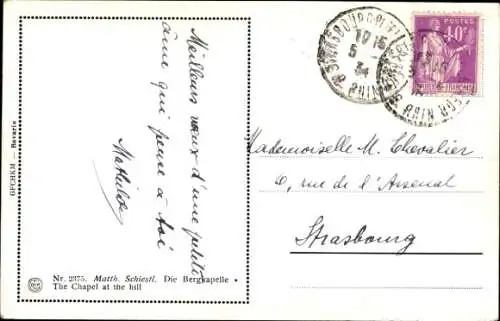 Meilleurs vœux d'une petite
âme qui pense à toi
Mathilde
GPCHKM — Bavaria
Nr. 2375. Matth. Schiestl. Die Bergkapelle •
The Chapel at the hill
STRASBOURG
10 15
5 -
34
BAS RHIN
POSTES
40c
RHIN
Mademoiselle M. Chevalier
6, rue de l'Arsenal
Strasbourg